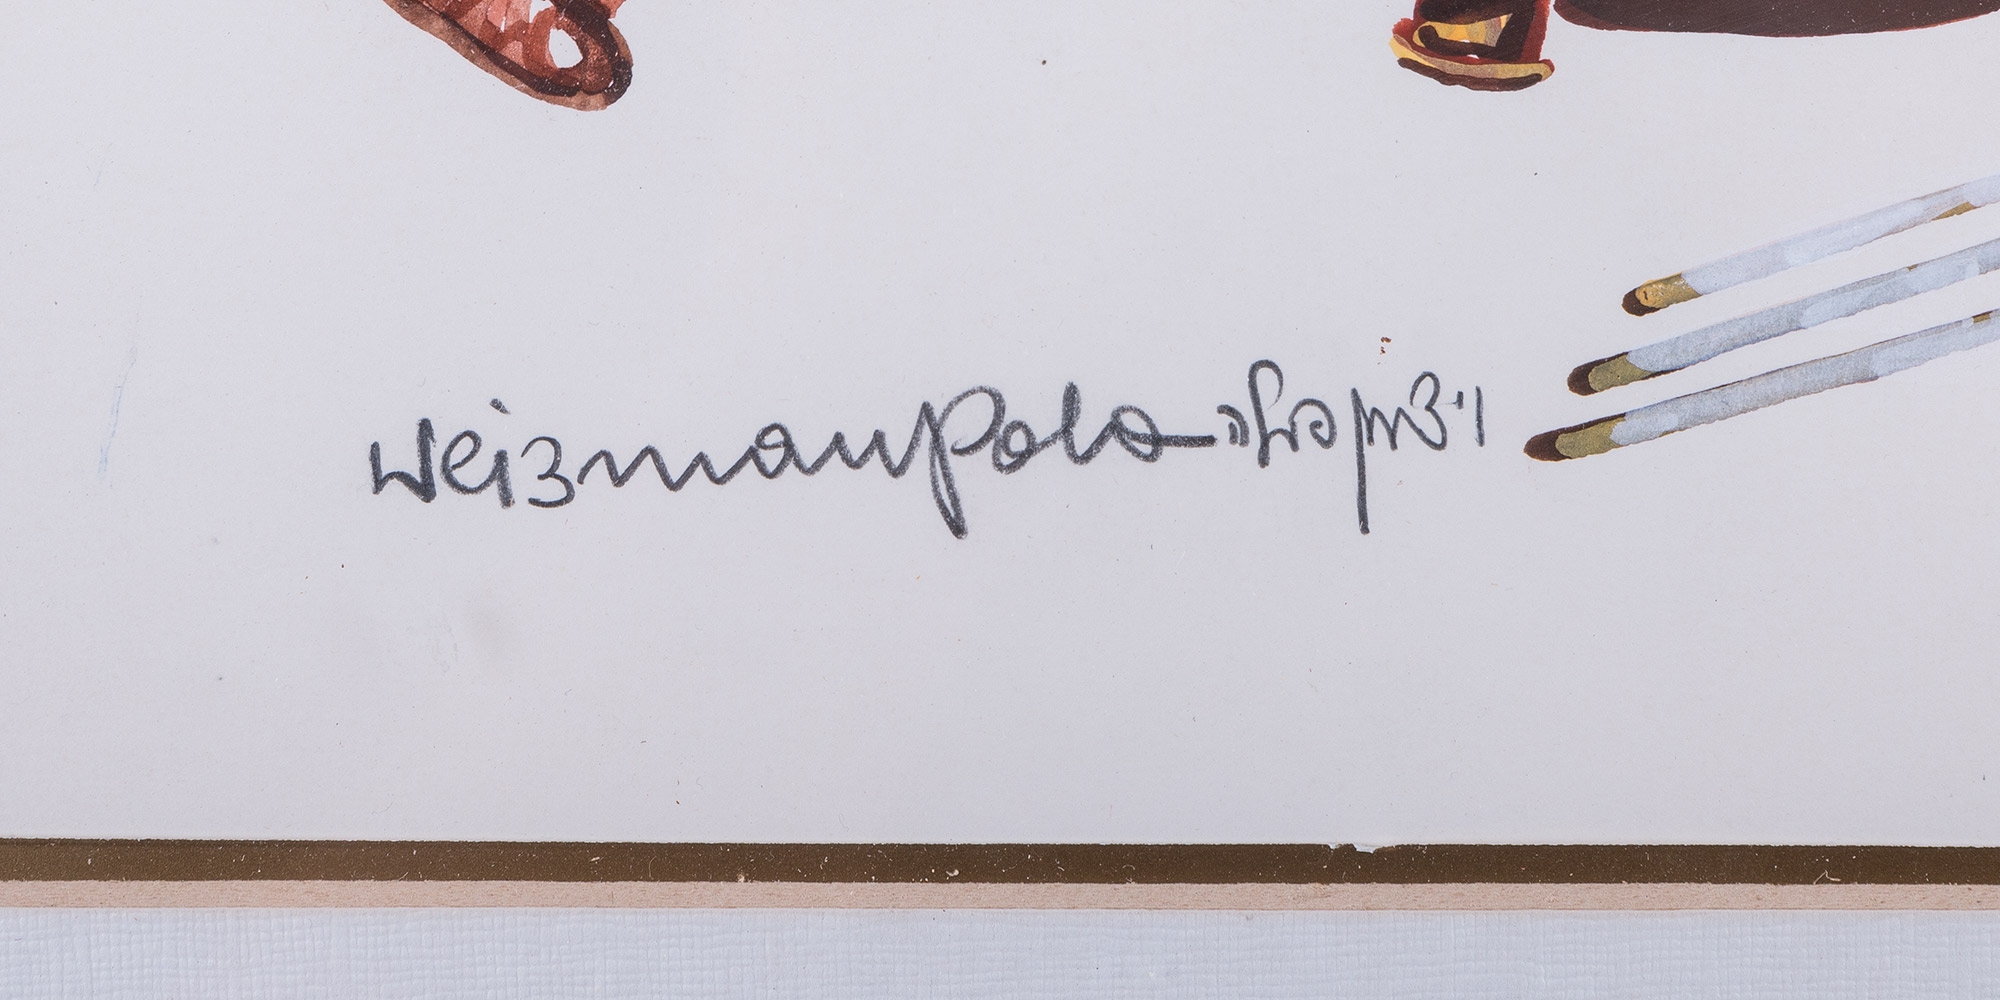 Weizman Pola ויצמן פולה